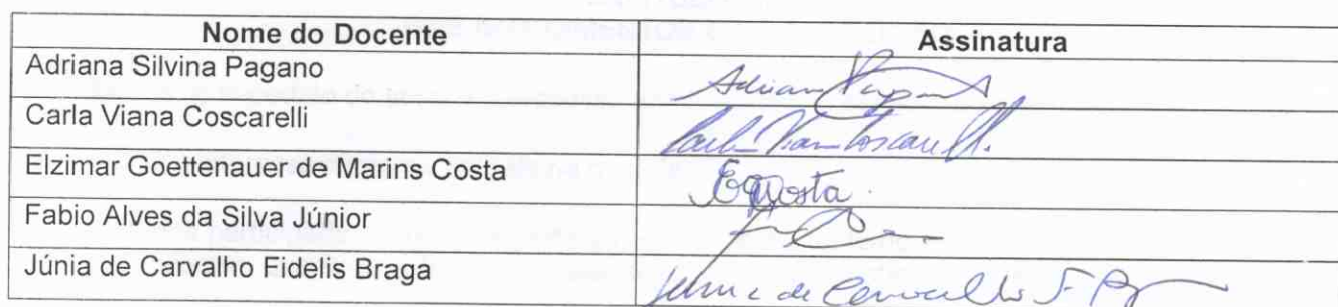 Nome do Docente Assinatura
Adriana Silvina Pagano Adriana Pagano
Carla Viana Coscarelli Carla Viana Coscarelli.
Elzimar Goettenauer de Marins Costa EGMCosta.
Fabio Alves da Silva Júnior
Júnia de Carvalho Fidelis Braga Júnia de Carvalho F. B